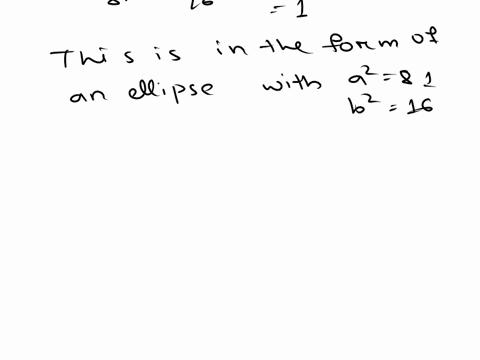 = 1
This is in the form of
an ellipse with a² = 81
b² = 16